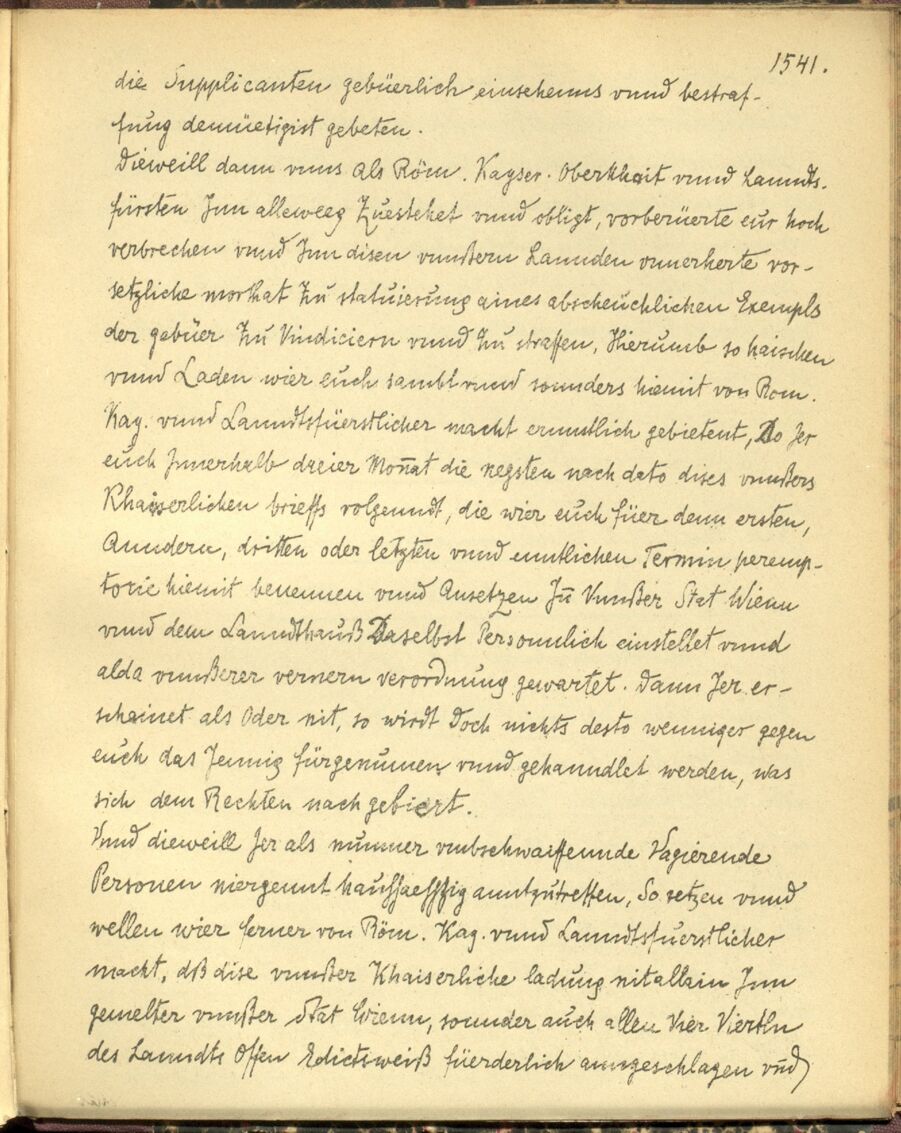 1541.
die Supplicanten gebüerlich einsehenns vnnd bestraf-
fung demüetigist gebeten.
Dieweill dann vnns als Röm. Kayser. Oberkhait vnnd Lanndts.
fürsten Inn alleweeg Zuestehet vnnd obligt, vorberüerte eur hoch
verbrechen vnnd Inn disen vnnßern Lannden vnnerherte vor-
setzliche morthat Zu statuierung aines abscheuchlichen Exempls
der gebüer Zu Vindiciern vnnd Zu straffen, Hierumb so haischen
vnnd Laden wier euch sambt vnnd sonnders hiemit von Rom.
Kay. vnnd Lanndtsfüerstlicher macht ernnstlich gebietent, Do Jer
euch Innerhalb dreier Monat die negsten nach dato dises vnnßers
Khaiserlichen brieffs volgenndt, die wier euch füer denn ersten,
Anndern, dritten oder letzten vnnd enntlichen Termin peremp-
torie hiemit benennen vnnd Ansetzen Zu Vnnßer Stat Wienn
vnnd dem Lanndthauß Daselbst Personnlich einstellet vnnd
alda vnnßerer vernern verordnung gewartet. Dann Jer er-
schainet als Oder nit, so wirdt Doch nichts desto wenniger gegen
euch das Jennig fürgenumen vnnd gehanndlet werden, was
sich dem Rechten nach gebiert.
Vnnd dieweill Jer als nummer vmbschwaiffennde Vagierende
Personen niergennt haußsaessig anntzutreffen, So setzen vnnd
wellen wier ferner von Röm. Kay. vnnd Lanndtsfuerstlicher
macht, dß dise vnnßer Khaiserliche ladung nit allain Inn
gemelter vnnßer Stat Wienn, sonnder auch allen Vier Viertln
des Lanndts Offen Edictsweiß füerderlich anngeschlagen vnd